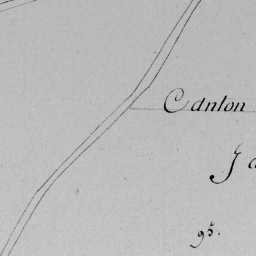 Canton
Ja
95.